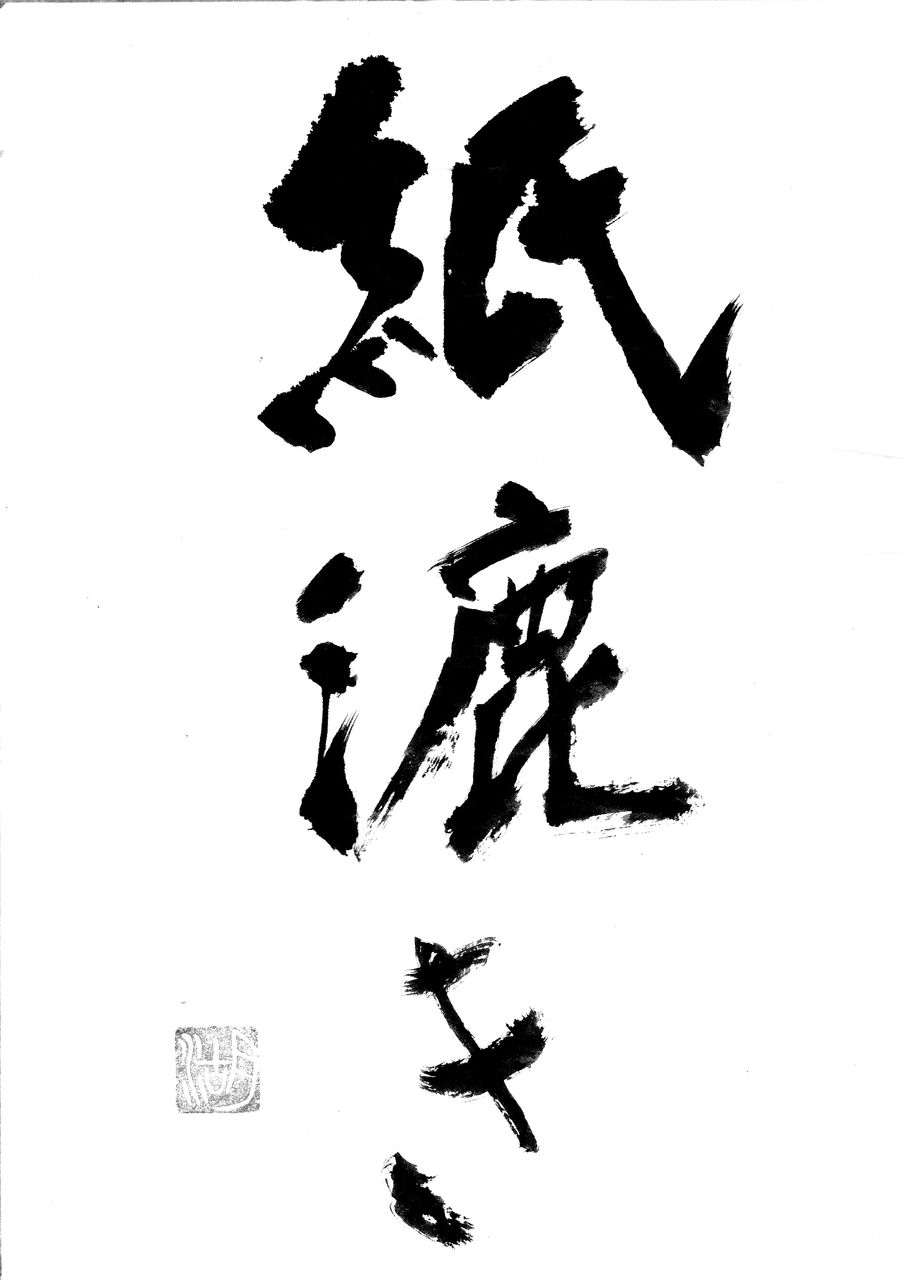 紙漉き